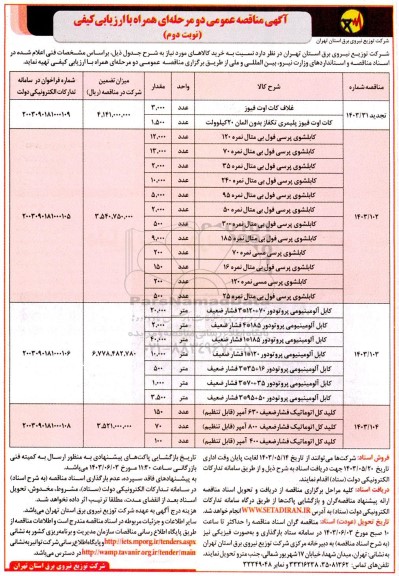 آگهی مناقصه عمومی دو مرحله‌ای همراه با ارزیابی کیفی
(نوبت دوم)
شرکت توزیع نیروی برق استان تهران
شرکت توزیع نیروی برق استان تهران در نظر دارد نسبت به خرید کالاهای مورد نیاز به شرح جدول ذیل، براساس مشخصات فنی اعلام شده در
اسناد مناقصه و استانداردهای وزارت نیرو، بین المللی و ملی از طریق برگزاری مناقصه عمومی دو مرحله‌ای همراه با ارزیابی کیفی تهیه نماید.
مناقصه شماره | شرح کالا | واحد | مقدار | میزان تضمین شرکت در مناقصه (ریال) | شماره فراخوان در سامانه تدارکات الکترونیکی دولت
تجدید ۱۴۰۳/۳۱ | غلاف کات اوت فیوز | عدد | ۳,۰۰۰ | ۴,۱۴۱,۰۰۰,۰۰۰ | ۲۰۰۳۰۹۰۱۸۱۰۰۰۱۰۹
کات اوت فیوز پلیمری تکفاز بدون المان ۲۰کیلوولت | عدد | ۱,۵۰۰
۱۴۰۳/۱۰۲ | ۳,۵۴۰,۷۵۰,۰۰۰ | ۲۰۰۳۰۹۰۱۸۱۰۰۰۱۰۵
کابلشوی پرسی فول بی متال نمره ۱۲۰ | عدد | ۱۲,۰۰۰
کابلشوی پرسی فول بی متال نمره ۷۰ | عدد | ۱۳,۰۰۰
کابلشوی پرسی فول بی متال نمره ۳۵ | عدد | ۲,۰۰۰
کابلشوی پرسی فول بی متال نمره ۲۴۰ | عدد | ۱۰,۰۰۰
کابلشوی پرسی فول بی متال نمره ۹۵ | عدد | ۵,۰۰۰
کابلشوی پرسی فول بی متال نمره ۵۰ | عدد | ۲,۰۰۰
کابلشوی پرسی فول بی متال نمره ۳۰۰ | عدد | ۵۰۰
کابلشوی پرسی فول بی متال نمره ۱۸۵ | عدد | ۹,۰۰۰
کابلشوی پرسی مسی نمره ۷۰ | عدد | ۲۰۰
کابلشوی پرسی فول بی متال نمره ۱۶ | عدد | ۱۵۰
کابلشوی پرسی مسی نمره ۱۲۰ | عدد | ۲۰۰
کابلشوی پرسی فول بی متال نمره ۲۵ | عدد | ۵۰۰
۱۴۰۳/۱۰۳ | ۶,۷۷۸,۴۸۲,۷۸۰ | ۲۰۰۳۰۹۰۱۸۱۰۰۰۱۰۶
کابل آلومینیومی پروتودور ۷۰+۱۲۰*۳ فشار ضعیف | متر | ۲۰,۰۰۰
کابل آلومینیومی پروتودور ۱۸۵*۴ فشار ضعیف | متر | ۲,۰۰۰
کابل آلومینیومی پروتودور ۱۸۵*۱ فشار ضعیف | متر | ۴۰,۰۰۰
کابل آلومینیومی پروتودور ۱۲۰*۱ فشار ضعیف | متر | ۱۰,۰۰۰
کابل آلومینیومی پروتودور ۱۶+۳۵*۳ فشار ضعیف | متر | ۵۰۰
کابل آلومینیومی پروتودور ۳۵+۷۰*۳ فشار ضعیف | متر | ۱,۰۰۰
کابل آلومینیومی پروتودور ۵۰+۹۵*۳ فشار ضعیف | متر | ۳,۵۰۰
۱۴۰۳/۱۰۴ | ۳,۵۲۱,۰۰۰,۰۰۰ | ۲۰۰۳۰۹۰۱۸۱۰۰۰۱۰۸
کلید کل اتوماتیک فشار ضعیف ۶۳۰ آمپر (قابل تنظیم) | عدد | ۱۵۰
کلید کل اتوماتیک فشار ضعیف ۸۰۰ آمپر (قابل تنظیم) | عدد | ۷۰
کلید کل اتوماتیک فشار ضعیف ۴۰۰ آمپر (قابل تنظیم) | عدد | ۱۰۰
فروش اسناد: شرکت‌ها می‌توانند از تاریخ ۱۴۰۳/۰۵/۱۴ لغایت پایان وقت اداری
تاریخ ۱۴۰۳/۰۵/۲۰ جهت دریافت اسناد به شرح ذیل و از طریق سامانه تدارکات
الکترونیکی (ستاد) اقدام نمایند.
دریافت اسناد: کلیه مراحل برگزاری مناقصه از دریافت و تحویل اسناد مناقصه
ارائه پیشنهاد مناقصه‌گران و بازگشایی پاکت‌ها از طریق درگاه سامانه تدارکات
الکترونیکی دولت (ستاد) به آدرس WWW.SETADIRAN.IR انجام خواهد شد.
تاریخ تحویل (عودت) اسناد: مناقصه گران اسناد مناقصه را حداکثر تا ساعت
۱۰ صبح مورخ ۱۴۰۳/۰۶/۰۳ در سامانه ستاد بارگذاری و بصورت فیزیکی نیز
(به شرح اسناد مناقصه) به دبیرخانه مرکزی شرکت توزیع نیروی برق استان تهران
به نشانی: تهران، میدان شهدا، خیابان ۱۷ شهریور شمالی، جنب مترو تحویل نمایند.
تلفن‌های تماس: ۳۵۰۸۱۳۶۲، ۳۳۳۱۶۲۳۸ و ۳۳۳۴۹۰۴۸
تاریخ بازگشایی پاکت‌های پیشنهادی به منظور ارسال به کمیته فنی
بازرگانی ساعت ۱۱:۳۰ مورخ ۱۴۰۳/۰۶/۰۳ می‌باشد.
به پیشنهادهای فاقد سپرده، عدم بارگذاری اسناد مناقصه (به شرح اسناد)
در سامانه تدارکات الکترونیکی دولت (ستاد)، مشروط، مخدوش، تحویل
اسناد بعد از انقضای مدت، مطلقا ترتیب اثر داده نخواهد شد.
هزینه درج آگهی به عهده شرکت توزیع نیروی برق استان تهران می‌باشد.
سایر اطلاعات و جزئیات مربوطه در اسناد مناقصه مندرج است و اطلاعات مناقصه از
طریق پایگاه اطلاع رسانی مناقصات سازمان مدیریت و برنامه‌ریزی کشور به نشانی
http://iets.mporg.ir/tenders.aspx و پایگاه اطلاع رسانی شرکت توانیر به نشانی
http://wamp.tavanir.org.ir/tender/main در دسترس می‌باشد.
شرکت توزیع نیروی برق استان تهران
ParsNamadData